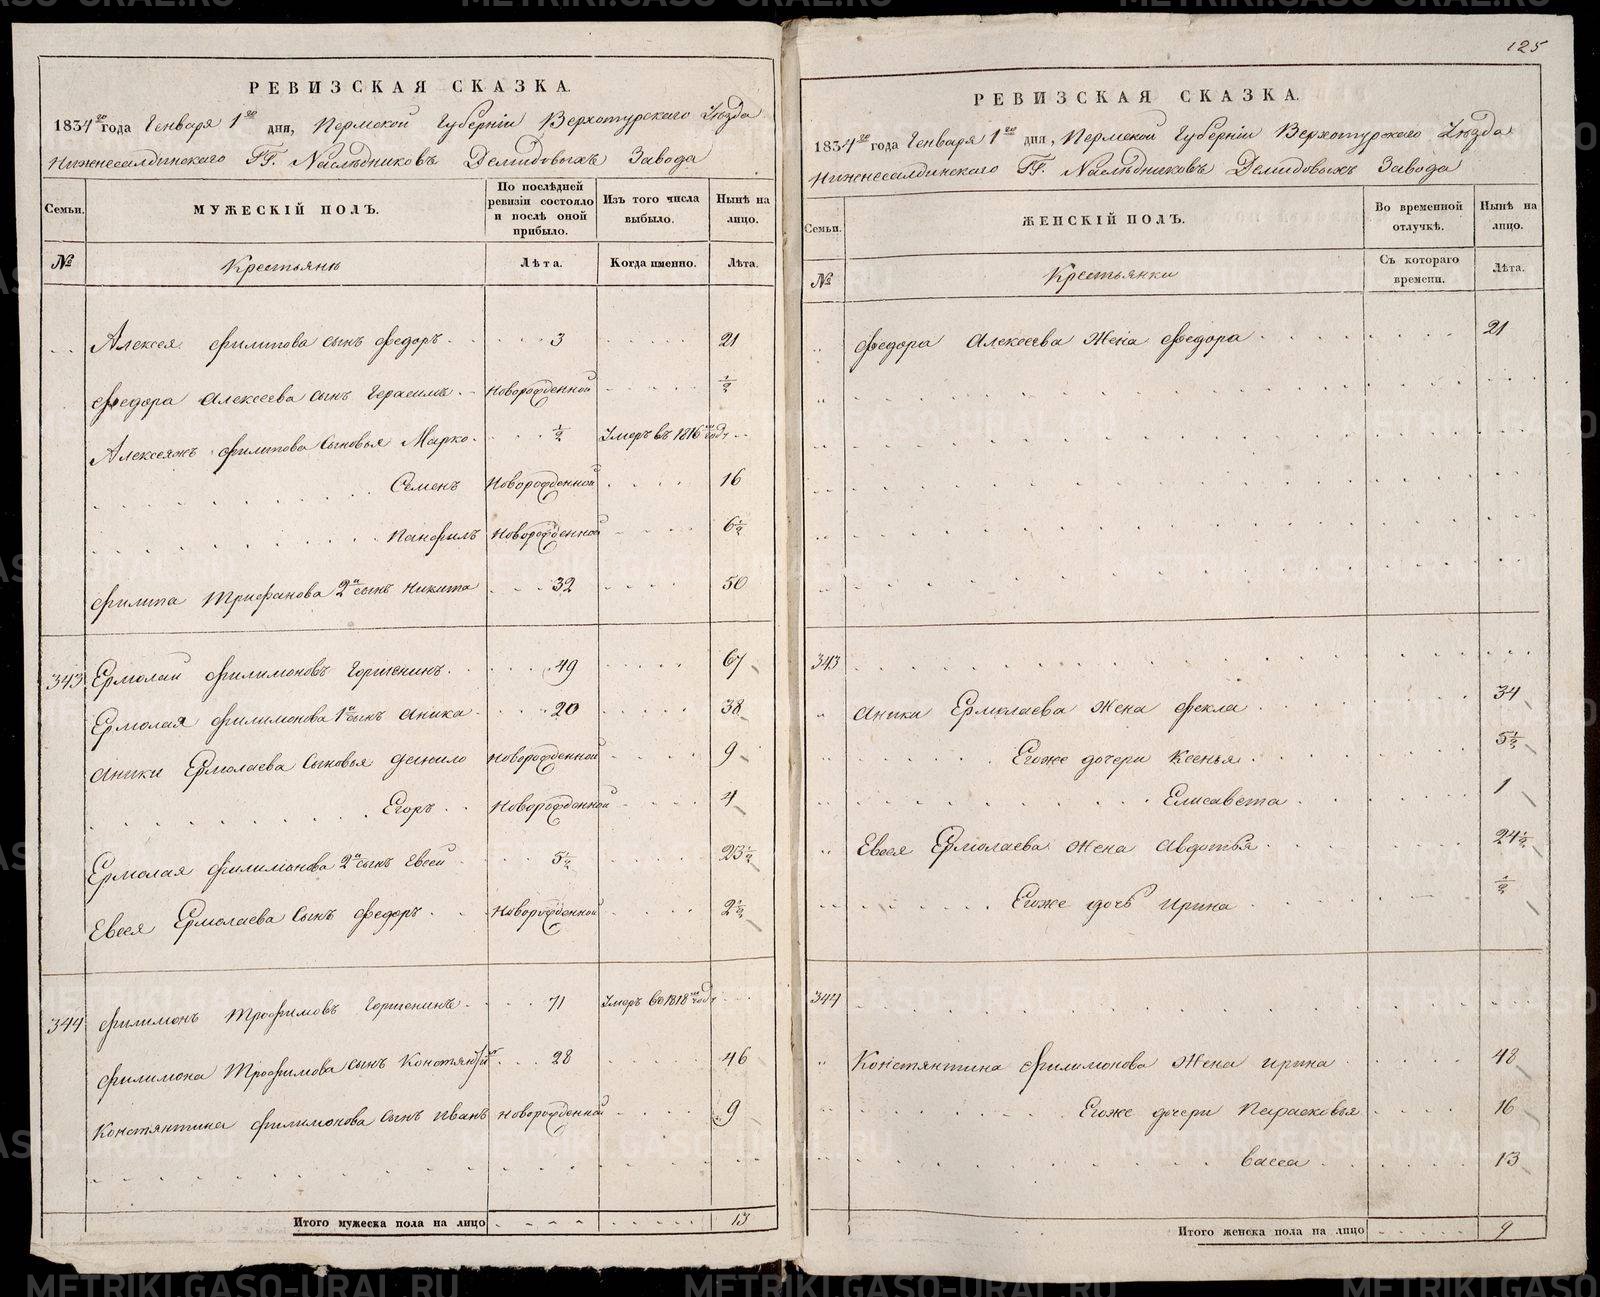 РЕВИЗСКАЯ СКАЗКА.
1834го года Генваря 1го дня, Пермской Губернiи Верхотурского Уѣзда
Нижнесалдинскаго ГГ. Наслѣдниковъ Демидовыхъ Завода
Семьи.
МУЖЕСКІЙ ПОЛЪ.
По послѣдней ревизіи состояло и послѣ оной прибыло.
Изъ того числа выбыло.
Нынѣ на лицо.
№ Крестьяне Лѣта. Когда именно. Лѣта.
Алексея филипова сынъ федоръ 3 21
федора Алексеева сынъ Герасимъ Новорожденной 1/2
Алексеяжъ филипова сыновья Марко 1/2 Умеръ въ 1816мъ годѣ
Семенъ Новорожденной 16
Панфилъ Новорожденной 6 1/2
филипа Трифанова 2й сынъ Никита 32 50
343 Ермолай филимоновъ Горшенинъ 49 67
Ермолая филимонова 1й сынъ Аника 20 38
Аники Ермолаева Сыновья данило Новорожденной 9
Егоръ Новорожденной 4
Ермолая филимонова 2й сынъ Евсей 5 1/2 23 1/2
Евсея Ермолаева Сынъ федоръ Новорожденной 2 1/2
344 филимонъ Трофимовъ Горшенинъ 71 Умеръ во 1818мъ годѣ
филимона Трофимова сынъ Констянтинъ 28 46
Констянтина филимонова сынъ иванъ Новорожденной 9
Итого мужеска пола на лицо 13
125
РЕВИЗСКАЯ СКАЗКА.
1834го года Генваря 1го дня, Пермской Губернiи Верхотурского Уѣзда
Нижнесалдинскаго ГГ. Наслѣдниковъ Демидовыхъ Завода
Семьи.
ЖЕНСКІЙ ПОЛЪ.
Во временной отлучкѣ.
Нынѣ на лицо.
№ Крестьянки Съ котораго времени. Лѣта.
федора Алексеева Жена федора 21
343
Аники Ермолаева Жена фекла 34
Егоже дочери Ксенья 5 1/2
Елисавета 1
Евсея Ермолаева Жена Авдотья 24 1/2
Егоже дочь Ирина 1/2
344
Констянтина филимонова Жена ирина 48
Егоже дочери Парасковья 16
васса 13
Итого женска пола на лицо 9
METRIKI.GASO-URAL.RU